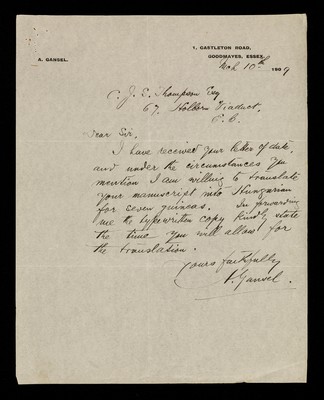 1, CASTLETON ROAD,
GOODMAYES, ESSEX.
A. GANSEL.
Mch 10th 1909
C. J. S. Thompson Esq
67, Holborn Viaduct,
E. C.
Dear Sir,
I have received your letter of date,
and under the circumstances you
mention I am willing to translate
your manuscript into Hungarian
for seven guineas. In forwarding
me the typewritten copy kindly state
the time you will allow for
the translation.
Yours faithfully
A. Gansel.